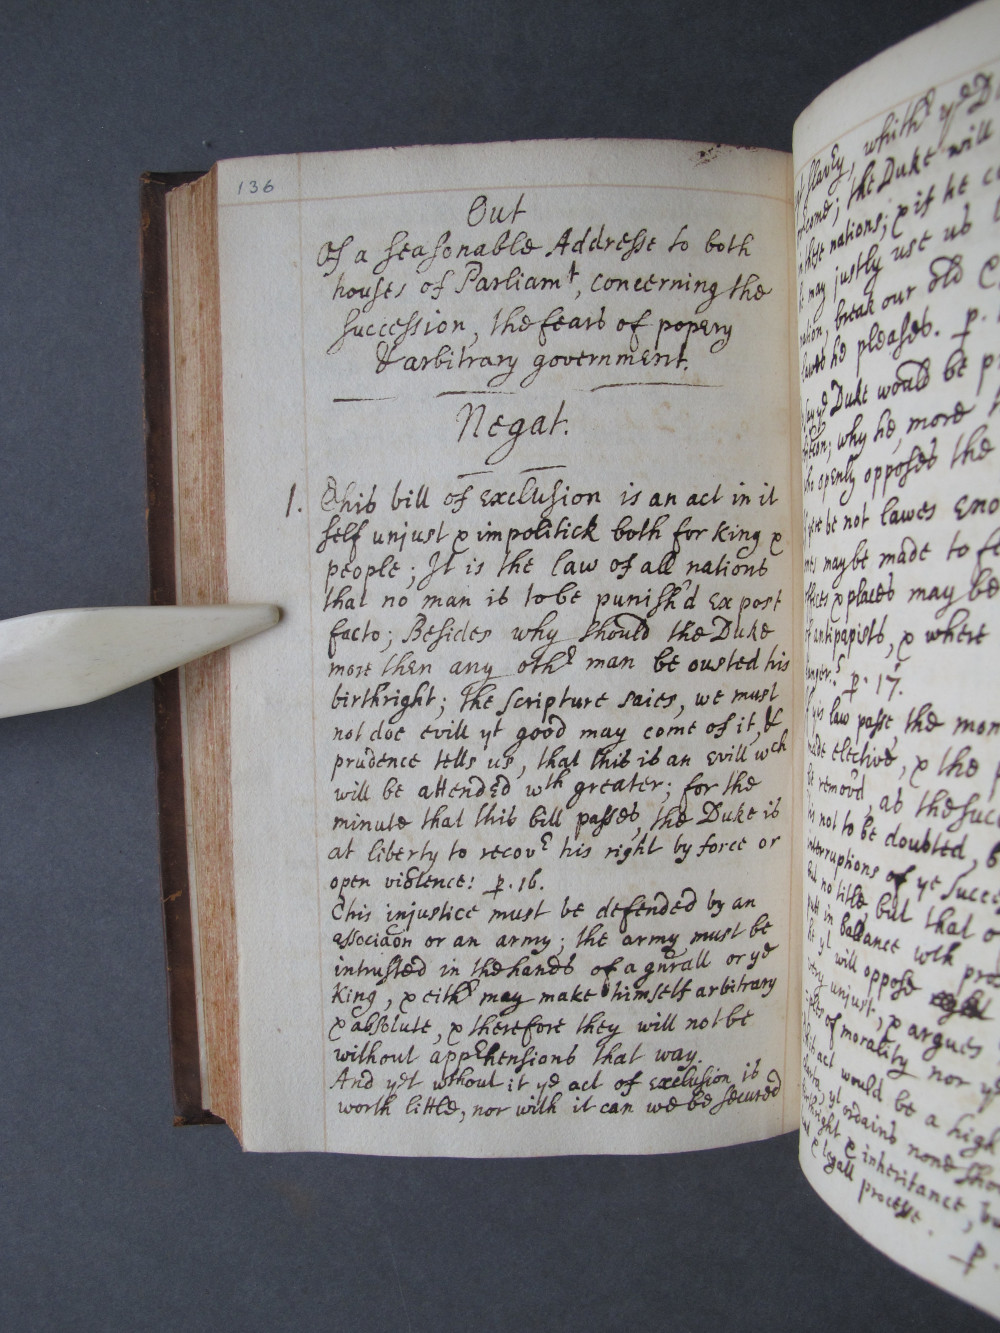 136
Out
Of a seasonable Addresse to both
houses of Parliamt, concerning the
succession, the fears of popery
& arbitrary government.
Negat.
1. This bill of exclusion is an act in it
self unjust & impolitick both for King &
people; It is the law of all nations
that no man is to be punish'd ex post
facto; Besides why should the Duke
more then any othr man be ousted his
birthright; the scripture saies, we must
not doe evill yt good may come of it, &
prudence tells us, that this is an evill wch
will be attended wth greater; for the
minute that this bill passes, the Duke is
at liberty to recovr his right by force or
open violence: p. 16.
This injustice must be defended by an
associaon or an army; the army must be
intrusted in the hands of a gnrall or ye
King, & eithr may make himself arbitrary
& absolute, & therefore they will not be
without apprehensions that way.
And yet without it ye act of exclusion is
worth little, nor with it can we be secured
slavery, which ye
come; the Duke will
these nations; & if he
may justly use us
break our old
laws he pleases. p.
ye Duke would be
why he, more
openly opposes the
be not lawes
may be made to
& places may be
antipapists, & where
p. 17.
law passe, the
made elective, & the
remov'd, as the
is not to be doubted,
interruptions of ye
no title but that
putt in ballance wth
yt will oppose
unjust, & argues
of morality nor
act would be a high
yt ordains none
& inheritance,
& legall processe.
p.